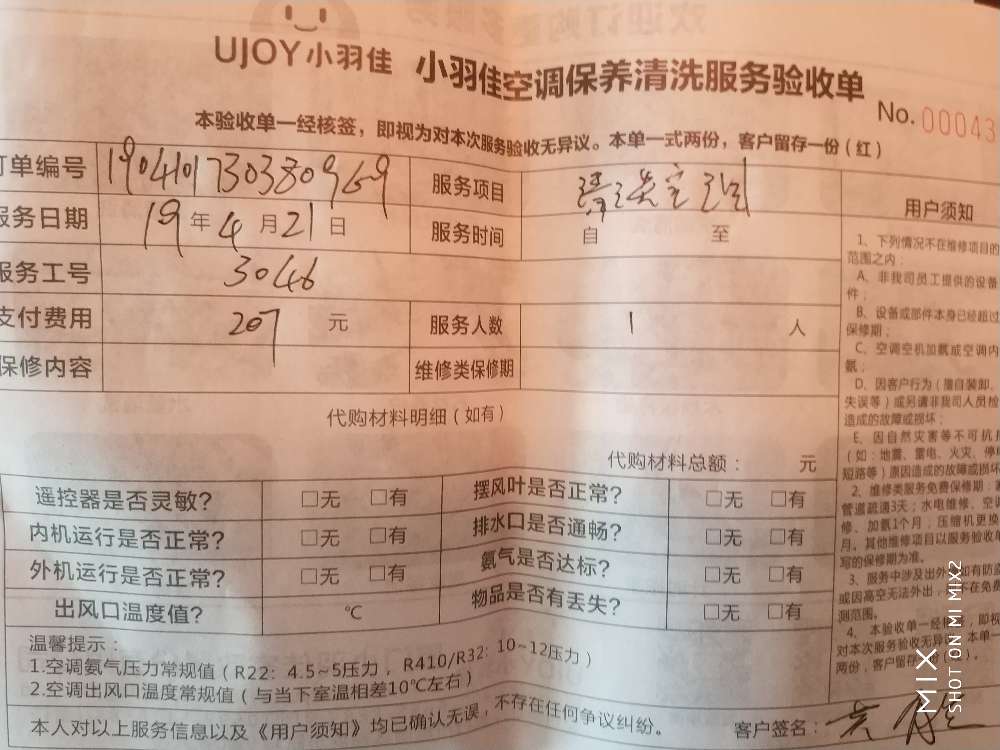 UJOY小羽佳 小羽佳空调保养清洗服务验收单
No. 00043
本验收单一经核签，即视为对本次服务验收无异议。本单一式两份，客户留存一份（红）
订单编号 190410173038096G9 服务项目
服务日期 19年4月21日 服务时间 自 至
服务工号 3046
支付费用 207 元 服务人数 1 人
保修内容 维修类保修期
代购材料明细（如有）
代购材料总额： 元
遥控器是否灵敏? □无 □有 摆风叶是否正常? □无 □有
内机运行是否正常? □无 □有 排水口是否通畅? □无 □有
外机运行是否正常? □无 □有 氨气是否达标? □无 □有
出风口温度值? ℃ 物品是否有丢失? □无 □有
温馨提示：
1.空调氨气压力常规值（R22：4.5~5压力，R410/R32: 10~12压力）
2.空调出风口温度常规值（与当下室温相差10℃左右）
本人对以上服务信息以及《用户须知》均已确认无误，不存在任何争议纠纷。 客户签名：
用户须知
1、下列情况不在维修项目的
范围之内：
A、非我司员工提供的设备
件；
B、设备或部件本身已经超过
保修期；
C、空调空机加氨或空调内
氨；
D、因客户行为（擅自装卸、
失误等）或另请非我司人员检
造成的故障或损坏；
E、因自然灾害等不可抗
（如：地震、雷电、火灾、停
短路等）原因造成的故障或损坏
2、维修类服务免费保修期：
管道疏通3天；水电维修、空
修、加氨1个月，压缩机更换
月。其他维修项目以服务验收单
写的保修期为准。
3、服务中涉及出外 如有防盗
或因高空无法外出， 不在免费
测范围。
4、本验收单一经 ，即视
对本次服务无异 本单一
两份，客户留存
MIX
SHOT ON MI MIX2